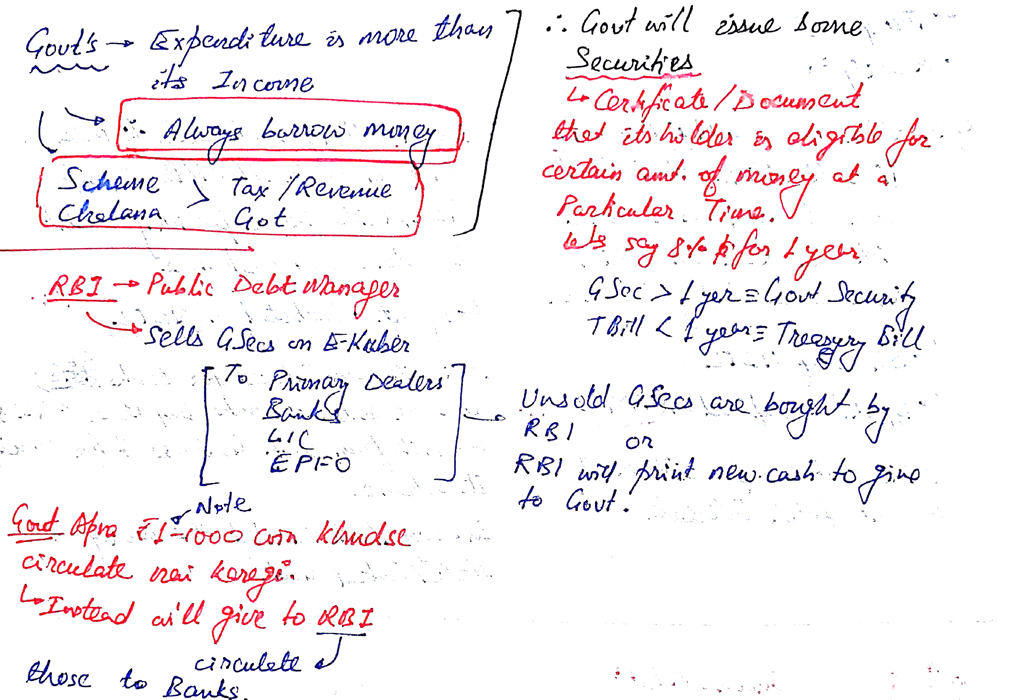 Govt's → Expenditure is more than
its Income
∴ Always borrow money
Scheme > Tax/Revenue
Chalana Got
∴ Govt will issue some
Securities
↳ Certificate/Document
that its holder is eligible for
certain amt. of money at a
Particular Time.
lets say 8% for 1 year
GSec > 1 yer ≡ Govt Security
TBill < 1 year ≡ Treasury Bill
RBI → Public Debt Manager
Sells GSecs on E-Kuber
To Primary Dealers
Banks
LIC
EPFO
Unsold GSecs are bought by
RBI or
RBI will print new cash to give
to Govt.
Note
Govt Apna ₹1-1000 coin khudse
circulate nai karegi.
↳ Instead will give to RBI
circulate
those to Banks.